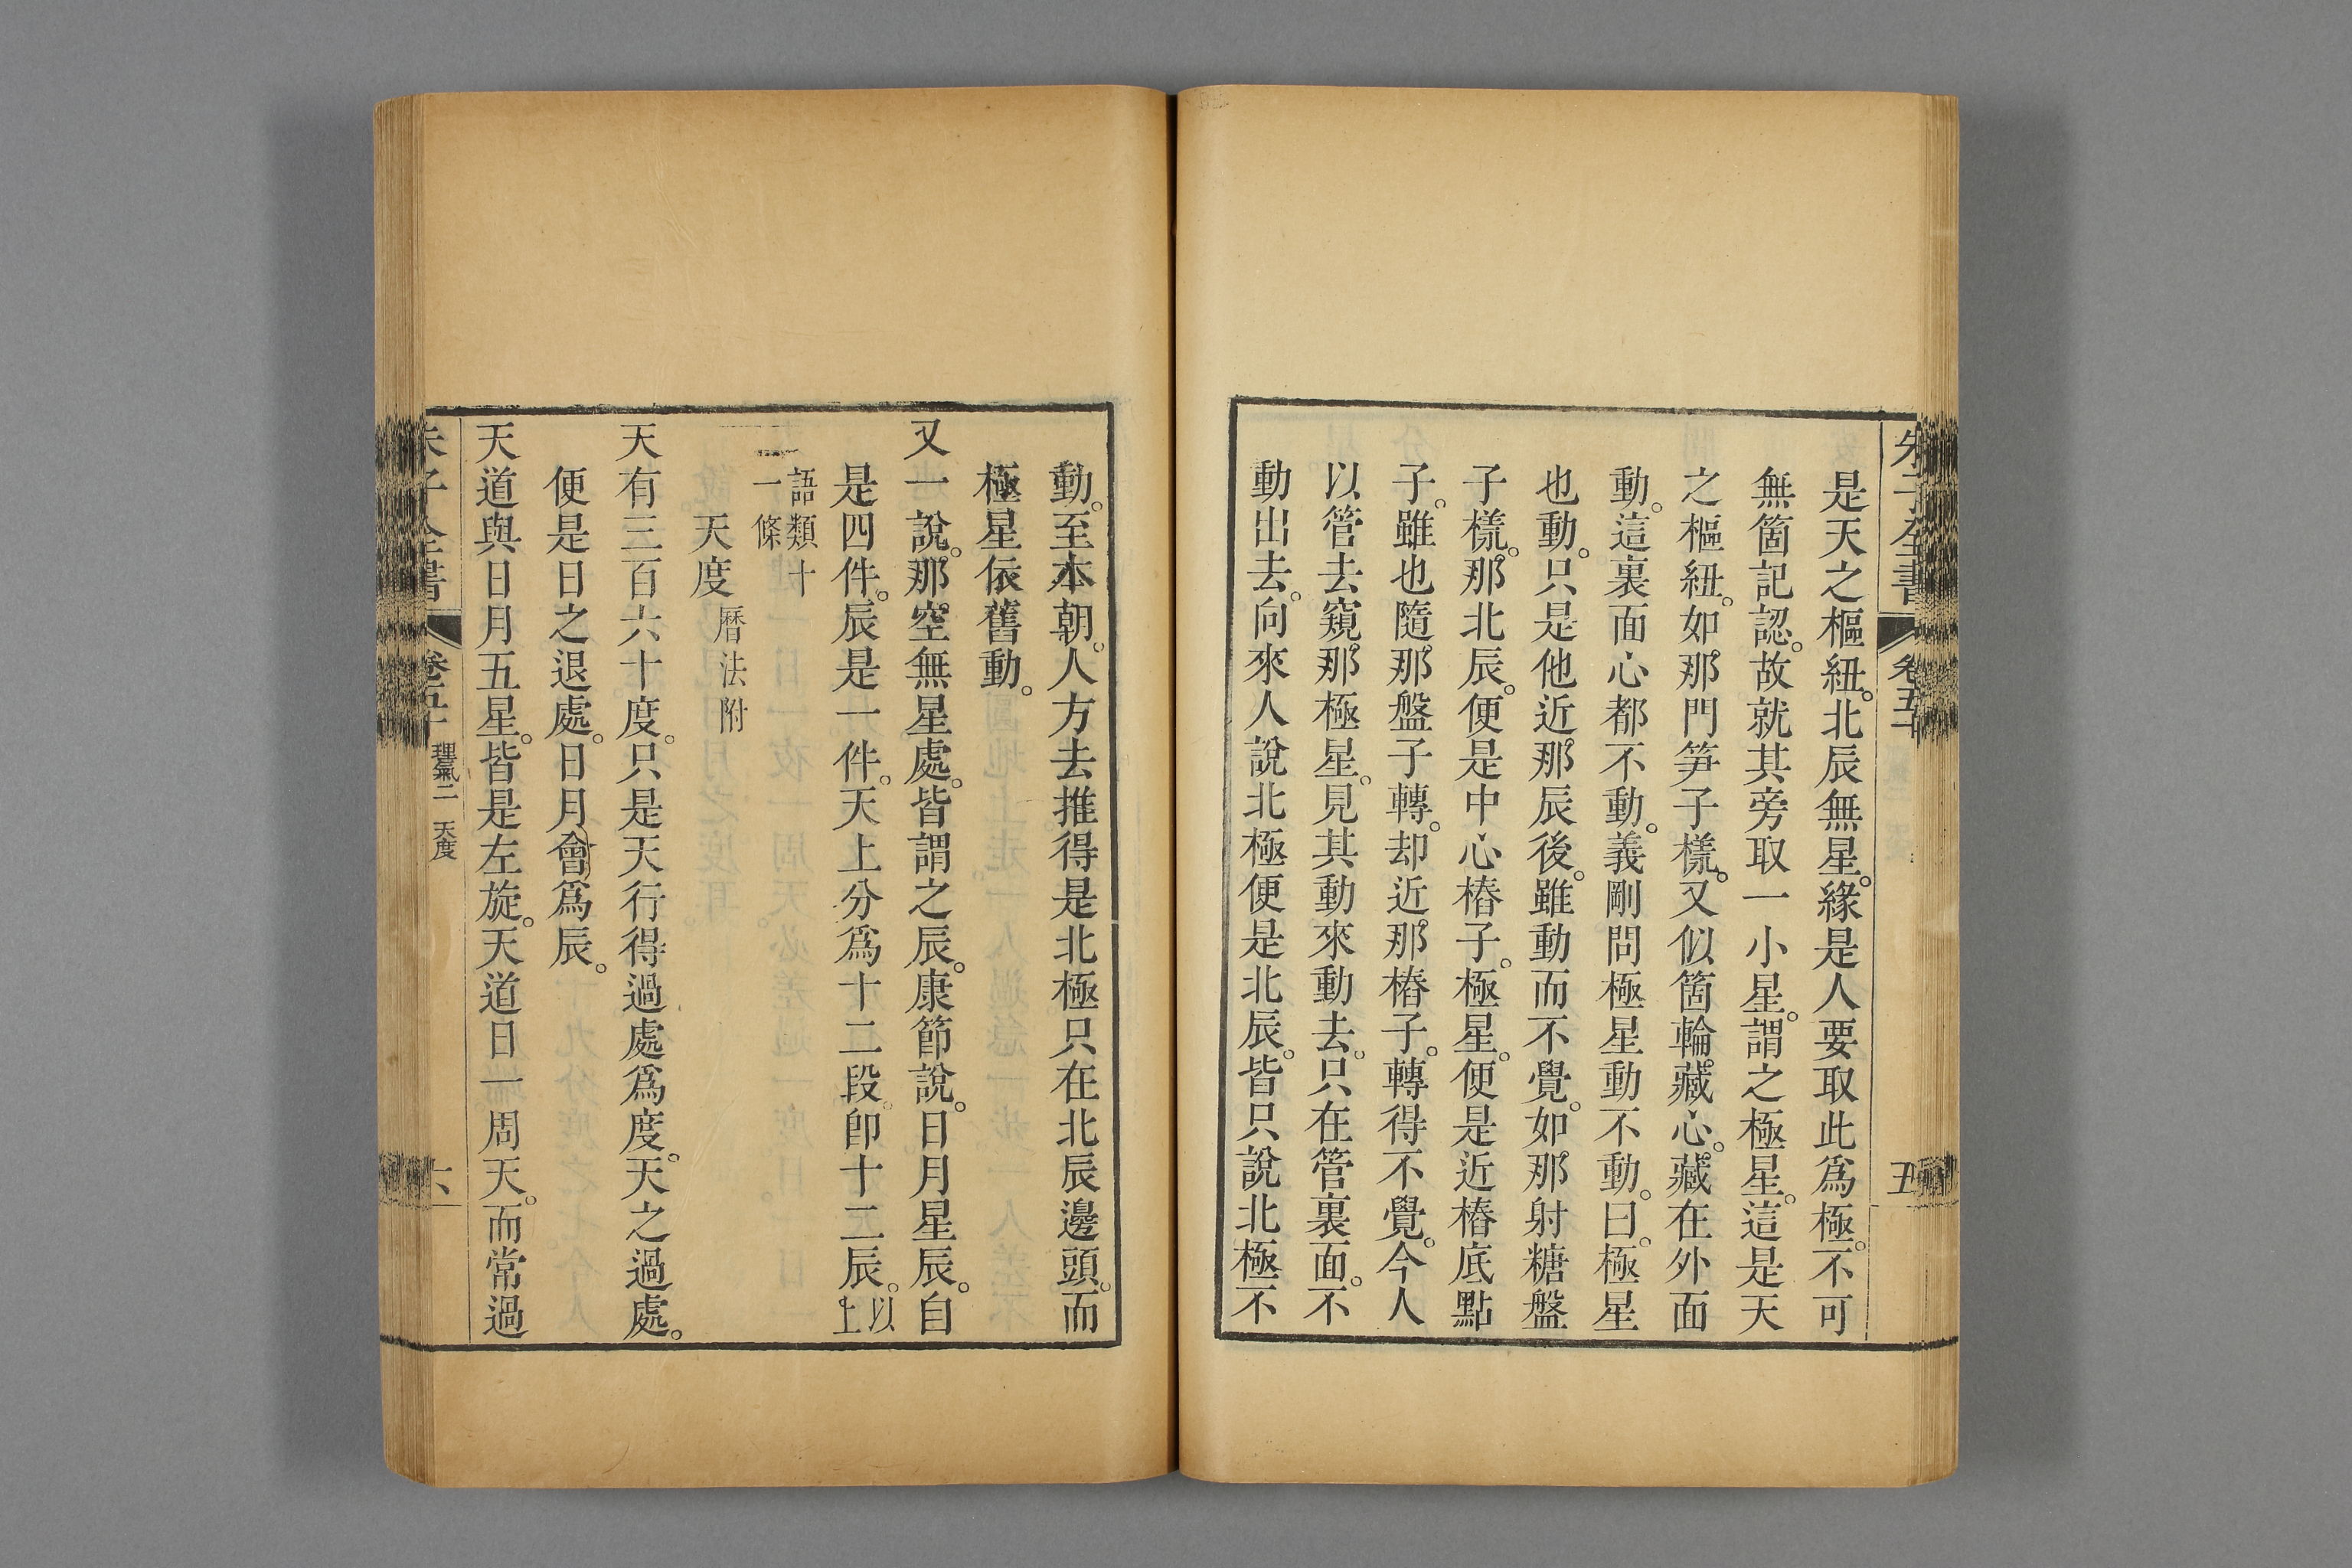 朱子全書 卷五十 五
是天之樞紐。北辰無星。緣是人要取此爲極。不可
無箇記認。故就其旁取一小星。謂之極星。這是天
之樞紐。如那門笋子樣。又似箇輪藏心。藏在外面
動。這裏面心都不動。義剛問極星動不動。曰。極星
也動。只是他近那辰後。雖動而不覺。如那射糖盤
子樣。那北辰。便是中心樁子。極星。便是近樁底點
子。雖也隨那盤子轉。却近那樁子。轉得不覺。今人
以管去窺那極星。見其動來動去。只在管裏面。不
動出去。向來人說北極便是北辰。皆只說北極不
動。至本朝。人方去推得是北極只在北辰邊頭。而
極星依舊動。
又一說。那空無星處。皆謂之辰。康節說。日月星辰。自
是四件。辰是一件。天上分爲十二段。卽十二辰。以上
語類十
一條
天度 曆法附
天有三百六十度。只是天行得過處爲度。天之過處。
便是日之退處。日月會爲辰。
天道與日月五星。皆是左旋。天道日一周天。而常過
朱子全書 卷五十 理氣二 天度 六